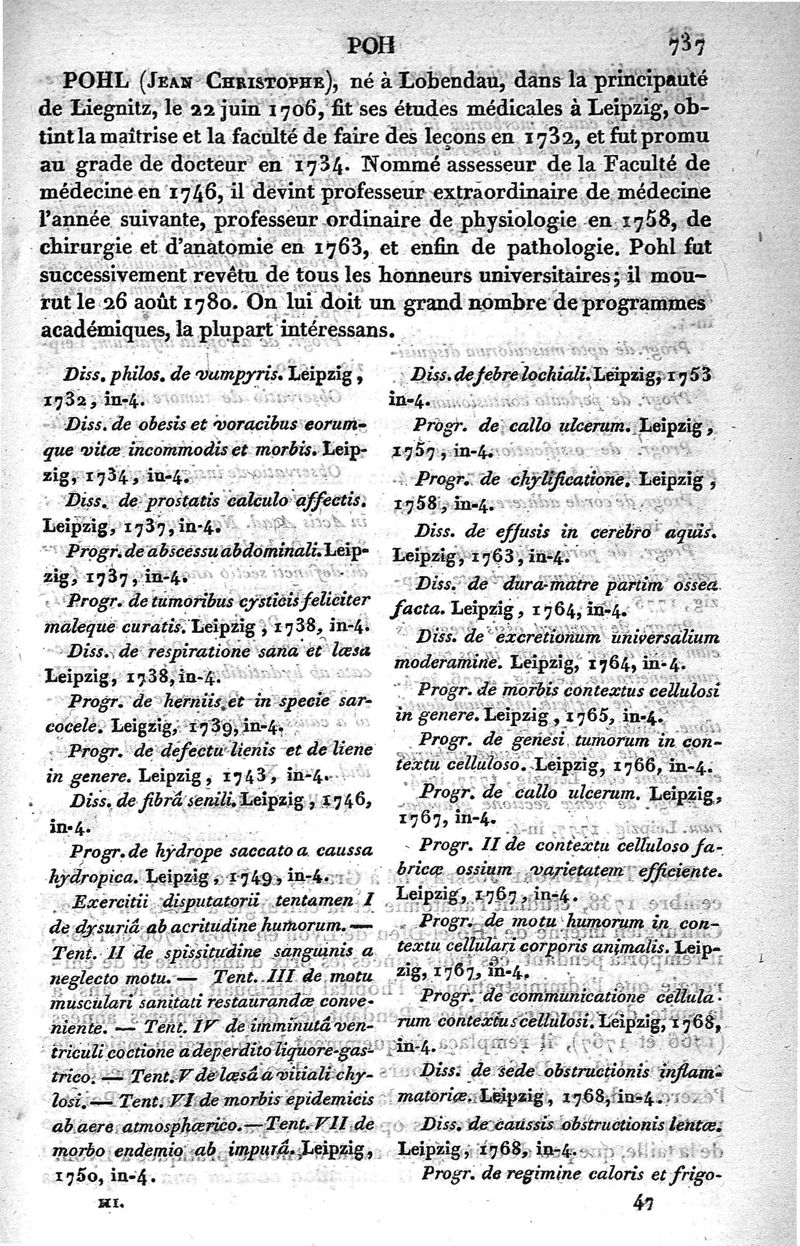 POH 737
POHL (Jean Christophe), né à Lobendau, dans la principauté
de Liegnitz, le 22 juin 1706, fit ses études médicales à Leipzig, ob-
tint la maîtrise et la faculté de faire des leçons en 1732, et fut promu
au grade de docteur en 1734. Nommé assesseur de la Faculté de
médecine en 1746, il devint professeur extraordinaire de médecine
l'année suivante, professeur ordinaire de physiologie en 1758, de
chirurgie et d'anatomie en 1763, et enfin de pathologie. Pohl fut
successivement revêtu de tous les honneurs universitaires; il mou-
rut le 26 août 1780. On lui doit un grand nombre de programmes
académiques, la plupart intéressans.
Diss. philos. de vampyris. Leipzig,
1732, in-4.
Diss. de obesis et voracibus eorum-
que vitæ incommodis et morbis. Leip-
zig, 1734, in-4.
Diss. de prostatis calculo affectis.
Leipzig, 1737, in-4.
Progr. de abscessu abdominali. Leip-
zig, 1737, in-4.
Progr. de tumoribus cysticis feliciter
maleque curatis. Leipzig, 1738, in-4.
Diss. de respiratione sana et læsa
Leipzig, 1738, in-4.
Progr. de herniis et in specie sar-
cocele. Leigzig, 1739, in-4.
Progr. de defectu lienis et de liene
in genere. Leipzig, 1743, in-4.
Diss. de fibrâ senili. Leipzig, 1746,
in-4.
Progr. de hydrope saccato a caussa
hydropica. Leipzig, 1749, in-4.
Exercitii disputatorii tentamen I
de dysuriâ ab acritudine humorum. —
Tent. II de spissitudine sanguinis a
neglecto motu. — Tent. III de motu
musculari sanitati restaurandæ conve-
niente. — Tent. IV de imminutâ ven-
triculi coctione a deperdito liquore gas-
trico. — Tent. V de læsâ a vitiali chy-
losi. — Tent. VI de morbis epidemicis
ab aere atmosphærico. — Tent. VII de
morbo endemio ab impurâ. Leipzig,
1750, in-4.
Diss. de febre lochiali. Leipzig, 1753
in-4.
Progr. de callo ulcerum. Leipzig,
1757, in-4.
Progr. de chylificatione. Leipzig,
1758, in-4.
Diss. de effusis in cerebro aquis.
Leipzig, 1763, in-4.
Diss. de dura-matre partim ossea
facta. Leipzig, 1764, in-4.
Diss. de excretionum universalium
moderamine. Leipzig, 1764, in-4.
Progr. de morbis contextus cellulosi
in genere. Leipzig, 1765, in-4.
Progr. de genesi tumorum in con-
textu celluloso. Leipzig, 1766, in-4.
Progr. de callo ulcerum. Leipzig,
1767, in-4.
Progr. II de contextu celluloso fa-
bricæ ossium varietatem efficiente.
Leipzig, 1767, in-4.
Progr. de motu humorum in con-
textu cellulari corporis animalis. Leip-
zig, 1767, in-4.
Progr. de communicatione cellula-
rum contextus cellulosi. Leipzig, 1768,
in-4.
Diss. de sede obstructionis inflam-
matoriæ. Leipzig, 1768, in-4.
Diss. de caussis obstructionis lentæ.
Leipzig, 1768, in-4.
Progr. de regimine caloris et frigo-
47